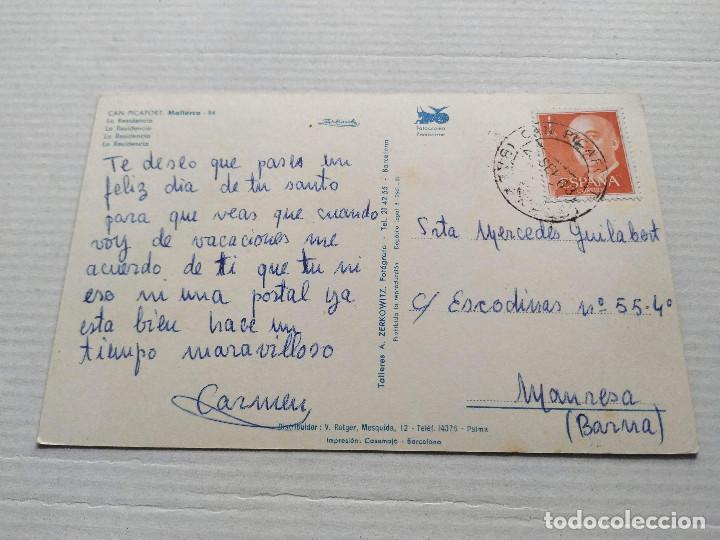 CAN PICAFORT. Mallorca - 84
La Residencia
La Residencia
La Residencia
La Residencia
Te deseo que pases un
feliz dia de tu santo
para que veas que cuando
voy de vacaciones me
acuerdo de ti que tu ni
eso ni una postal ya
esta bien hace un
tiempo maravilloso
Carmen
Zerkowitz
Talleres A. ZERKOWITZ. Fotógrafo - Tel. 21 42 55 - Barcelona
Prohibida la reproducción
Depósito legal B.
Fotocolor
CAN PICAFORT
ESPAÑA
CORREOS
Srta Mercedes Guilabert
c/ Escodinas nº 55-4º
Manresa
(Barna)
Distribuidor: V. Rotger, Mosquida, 12 - Teléf. 14376 - Palma
Impresión: Casamajó - Barcelona
todocoleccion